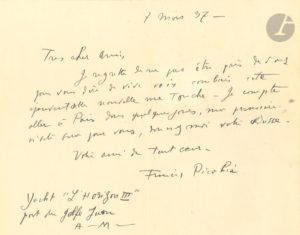 7 Mars 37 –
Tres cher ami,
Je regrette de ne pas être près de vous
pour vous dire de vive voix combien cette
épouvantable nouvelle me touche – Je compte
aller à Paris dans quelques jours, ma première
visite sera pour vous, moi votre
Votre ami de tout coeur –
Francis Picabia
Yacht "L'Horizon III"
port du golfe Juan
A – M –